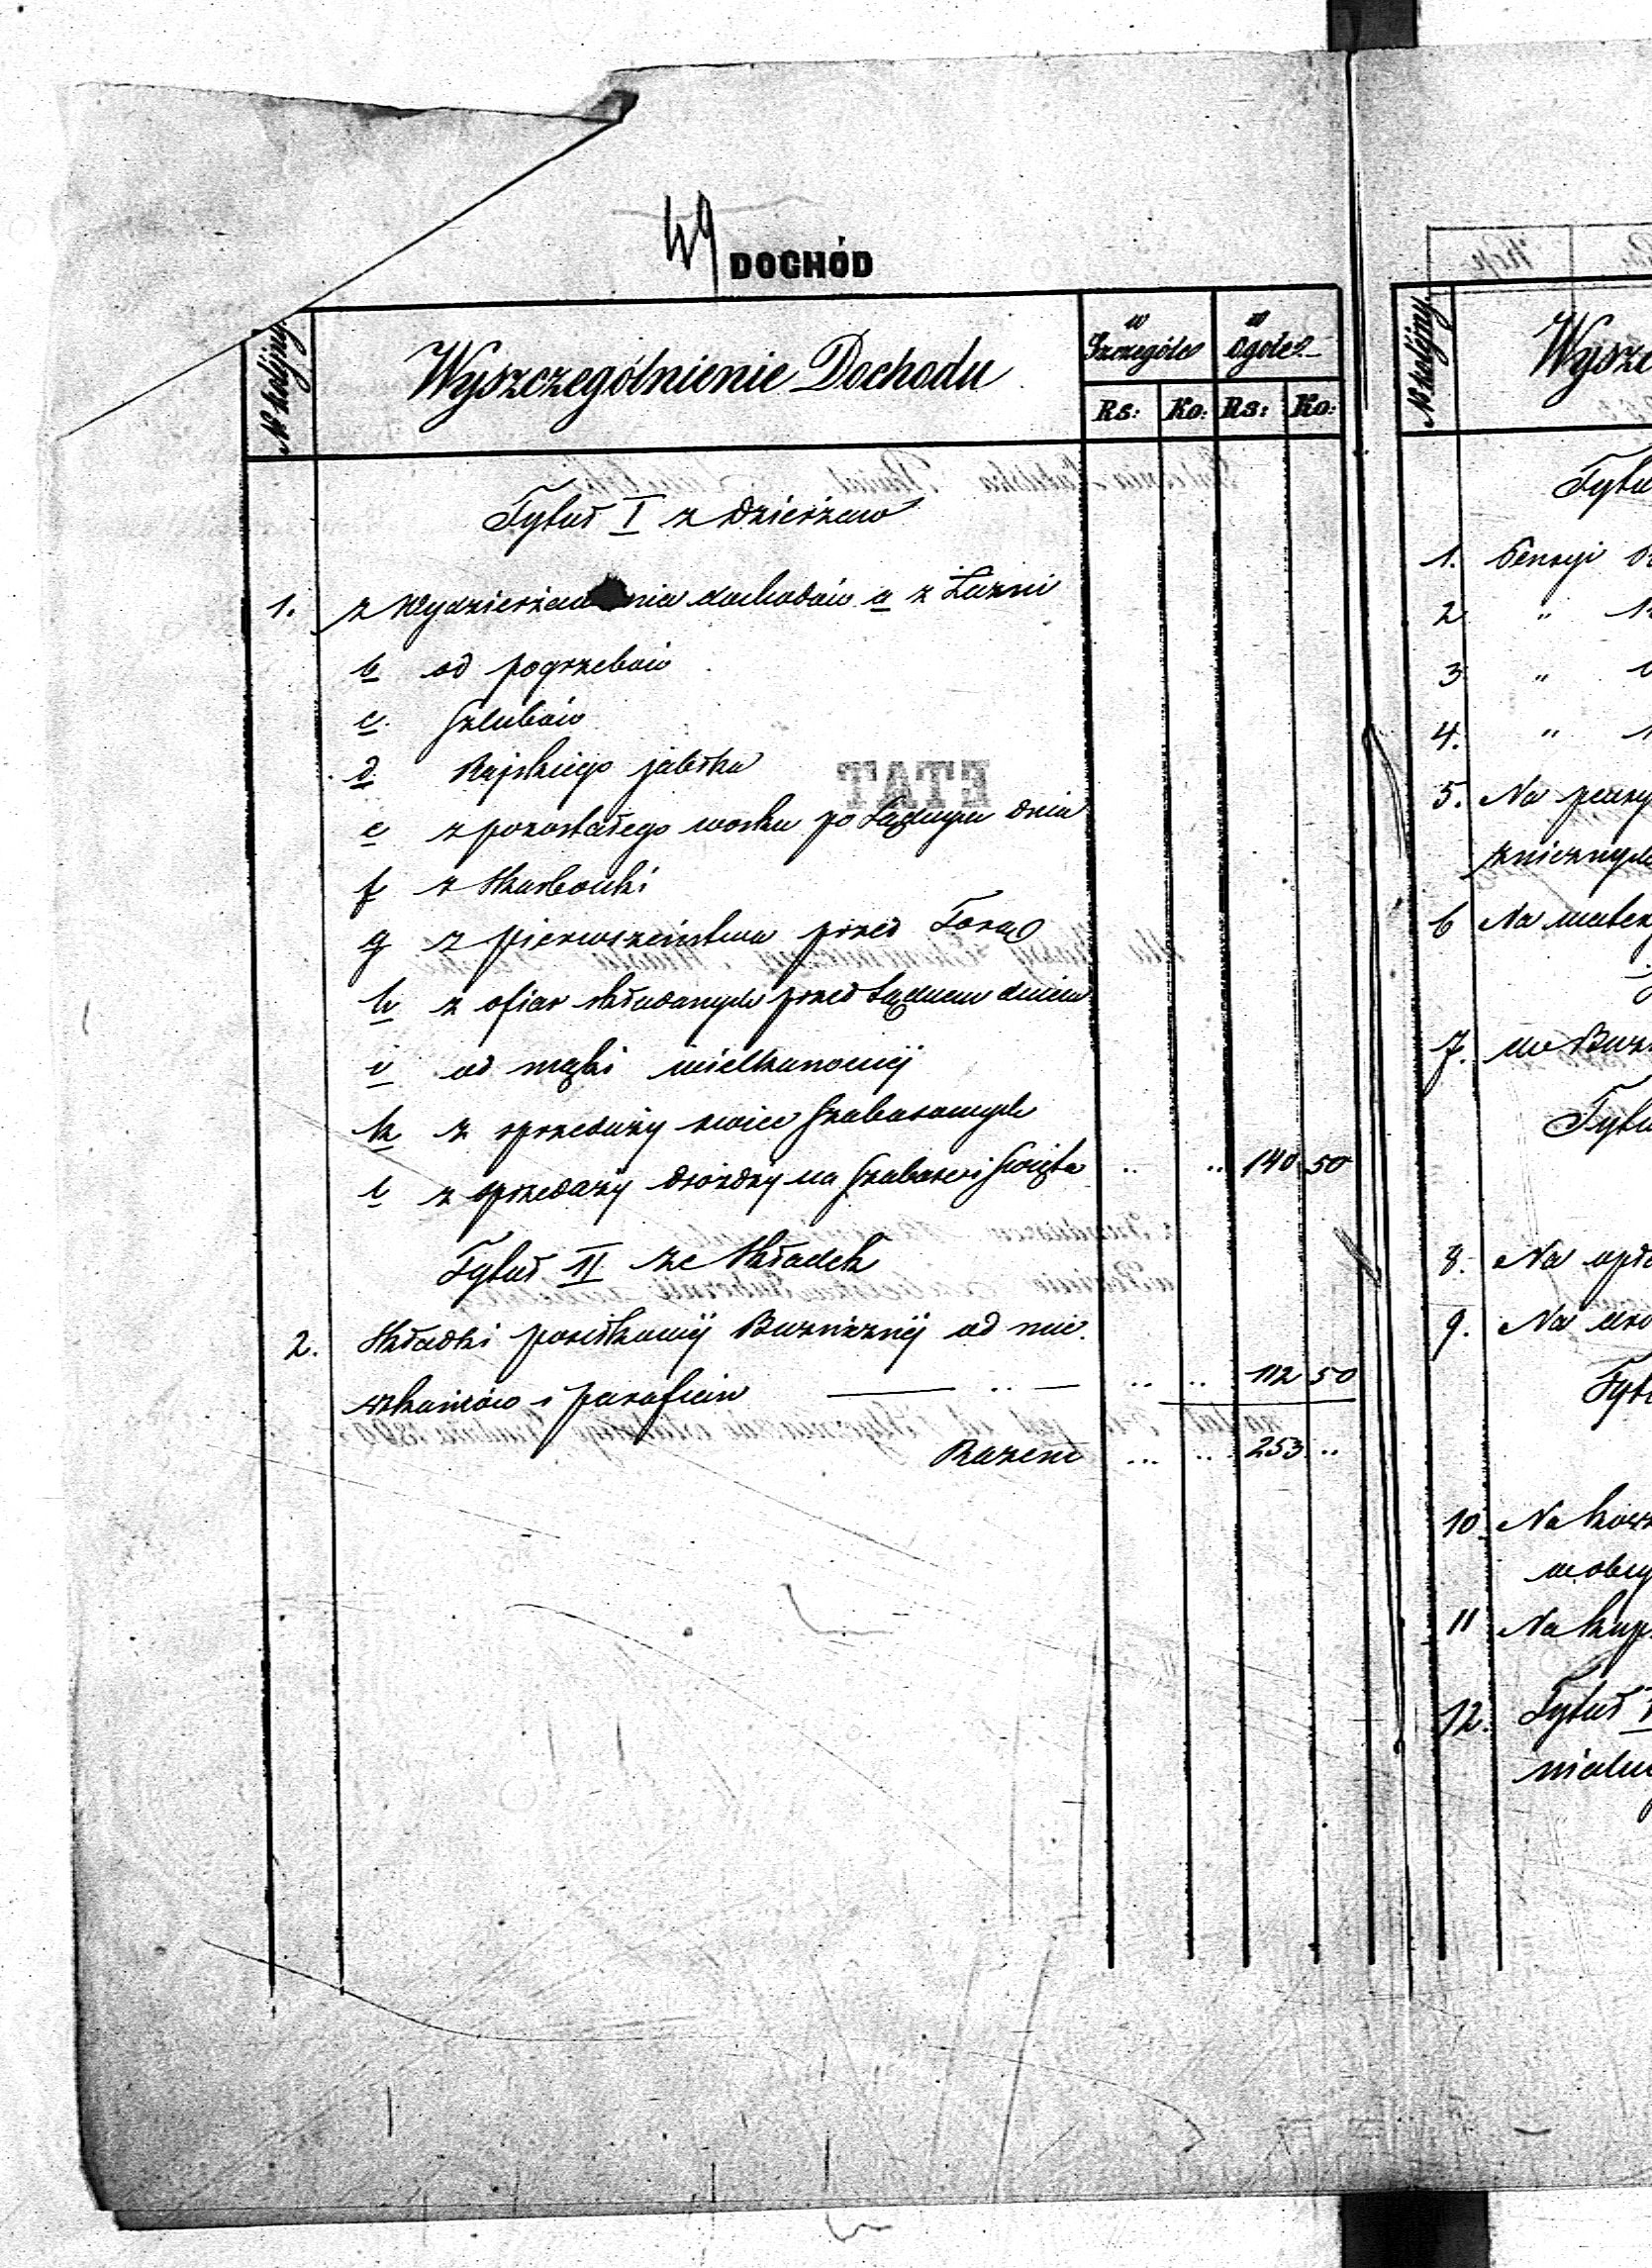 49
DOCHÓD
№ kolejny
Wyszczególnienie Dochodu
w Szczególe
w Ogóle
Rs: Ko: Rs: Ko:
Tytuł I z Dzierżaw
1. z Wydzierżawienia dochodów a z Łaźni
b od pogrzebów
c. Szlubów
d. Rajskiego jabłka
e z pozostałego wosku po Sądnym dniu
f z Skarbonki
g z pierwszeństwa przed Torą
h z ofiar składanych przed Sądnem dniem
i od mąki wielkanocnej
k z sprzedaży swiec Szabasowych
l z sprzedaży drożdży na Szabase i Swięta .. .. 140 50
Tytuł II ze Składek
2. Składki posiłkowej Buzniznej od mie
szkańców i parafian .. .. .. 112 50
Razem ... ... 253 ..
№ kolejny
Wyszcz
Tytu
1. Pensyi
2 "
3 "
4. "
5. Na pensy
żnicznych
6 Na mater
7. do Buz
Tytu
8. Na opł
9. Na
Tyt
10 Na kosz
11 Na kup
12. Tytuł